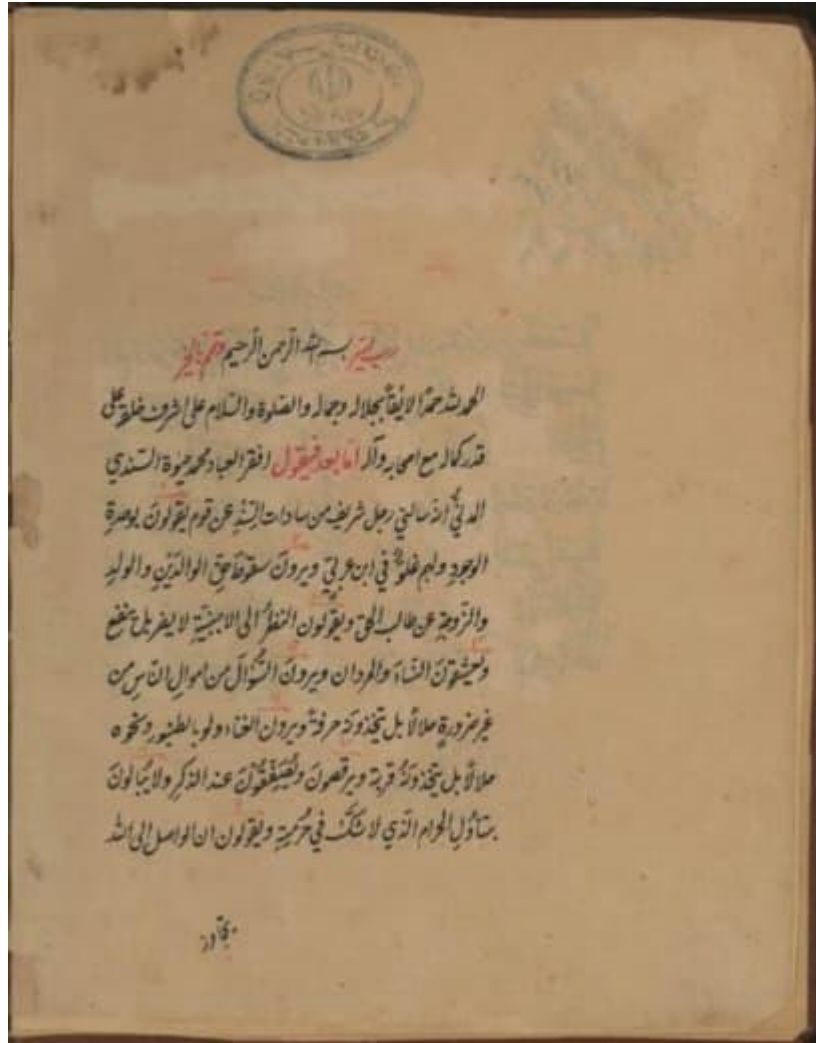 رب يسر بسم الله الرحمن الرحيم وتمم بالخير
الحمد لله حمدًا لايقًا بجلاله وجماله والصلوة والسلام على اشرف خلقه على
قدر كماله مع اصحابه وآله امّا بعد فيقول افقر العباد محمد حيوة السندي
المدني اذ سالني رجل شريف من سادات السند عن قوم يقولون بوحدة
الوجود ولهم غلوٌّ في ابن عربي ويرون سقوط حق الوالدين والولد
والزوجة عن طالب الحق ويقولون النظر الى الاجنبية لا يضر بل ينفع
ويعشقون النساء والمردان ويرون السؤال من اموال الناس من
غير ضرورة حلالا بل يتخذونه حرفة ويرون الغناء ولو بالطنبور ونحوه
حلالا بل يتخذونه قربة ويرقصون ويصفقون عند الذكر ولا يبالون
بتناول الحرام الذي لا شك في حرمته ويقولون ان الواصل الى الله